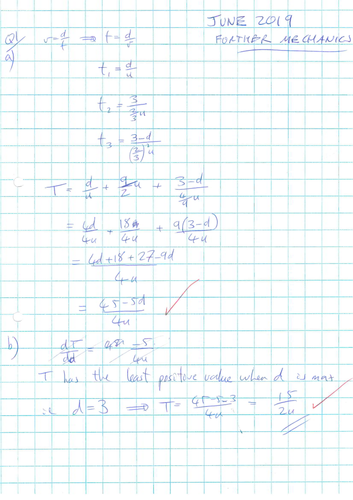 JUNE 2019
FURTHER MECHANICS
Q1
a)
v = d/t ⇒ t = d/v
t₁ = d/u
t₂ = 3/(2/3 u)
t₃ = (3-d)/((2/3)² u)
T = d/u + 9/2u + (3-d)/(4/9 u)
= 4d/4u + 18/4u + 9(3-d)/4u
= (4d+18+27-9d)/4u
= (45-5d)/4u
b)
dT/dd = -5/4u
T has the least positive value when d is max
ie d=3 ⇒ T = (45-5×3)/4u = 15/2u